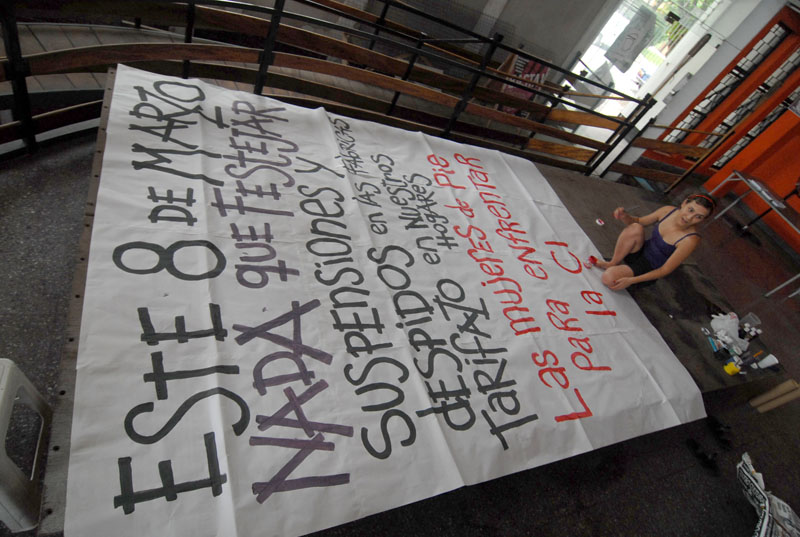 ESTE 8 DE MARZO
NADA que FESTEJAR
SUSPENSIONES y
DESPIDOS en LAS FÁBRICAS
TARIFAZO en NUESTROS
HOGARES
Las mujeres de Pie
para enfrentar
la CI